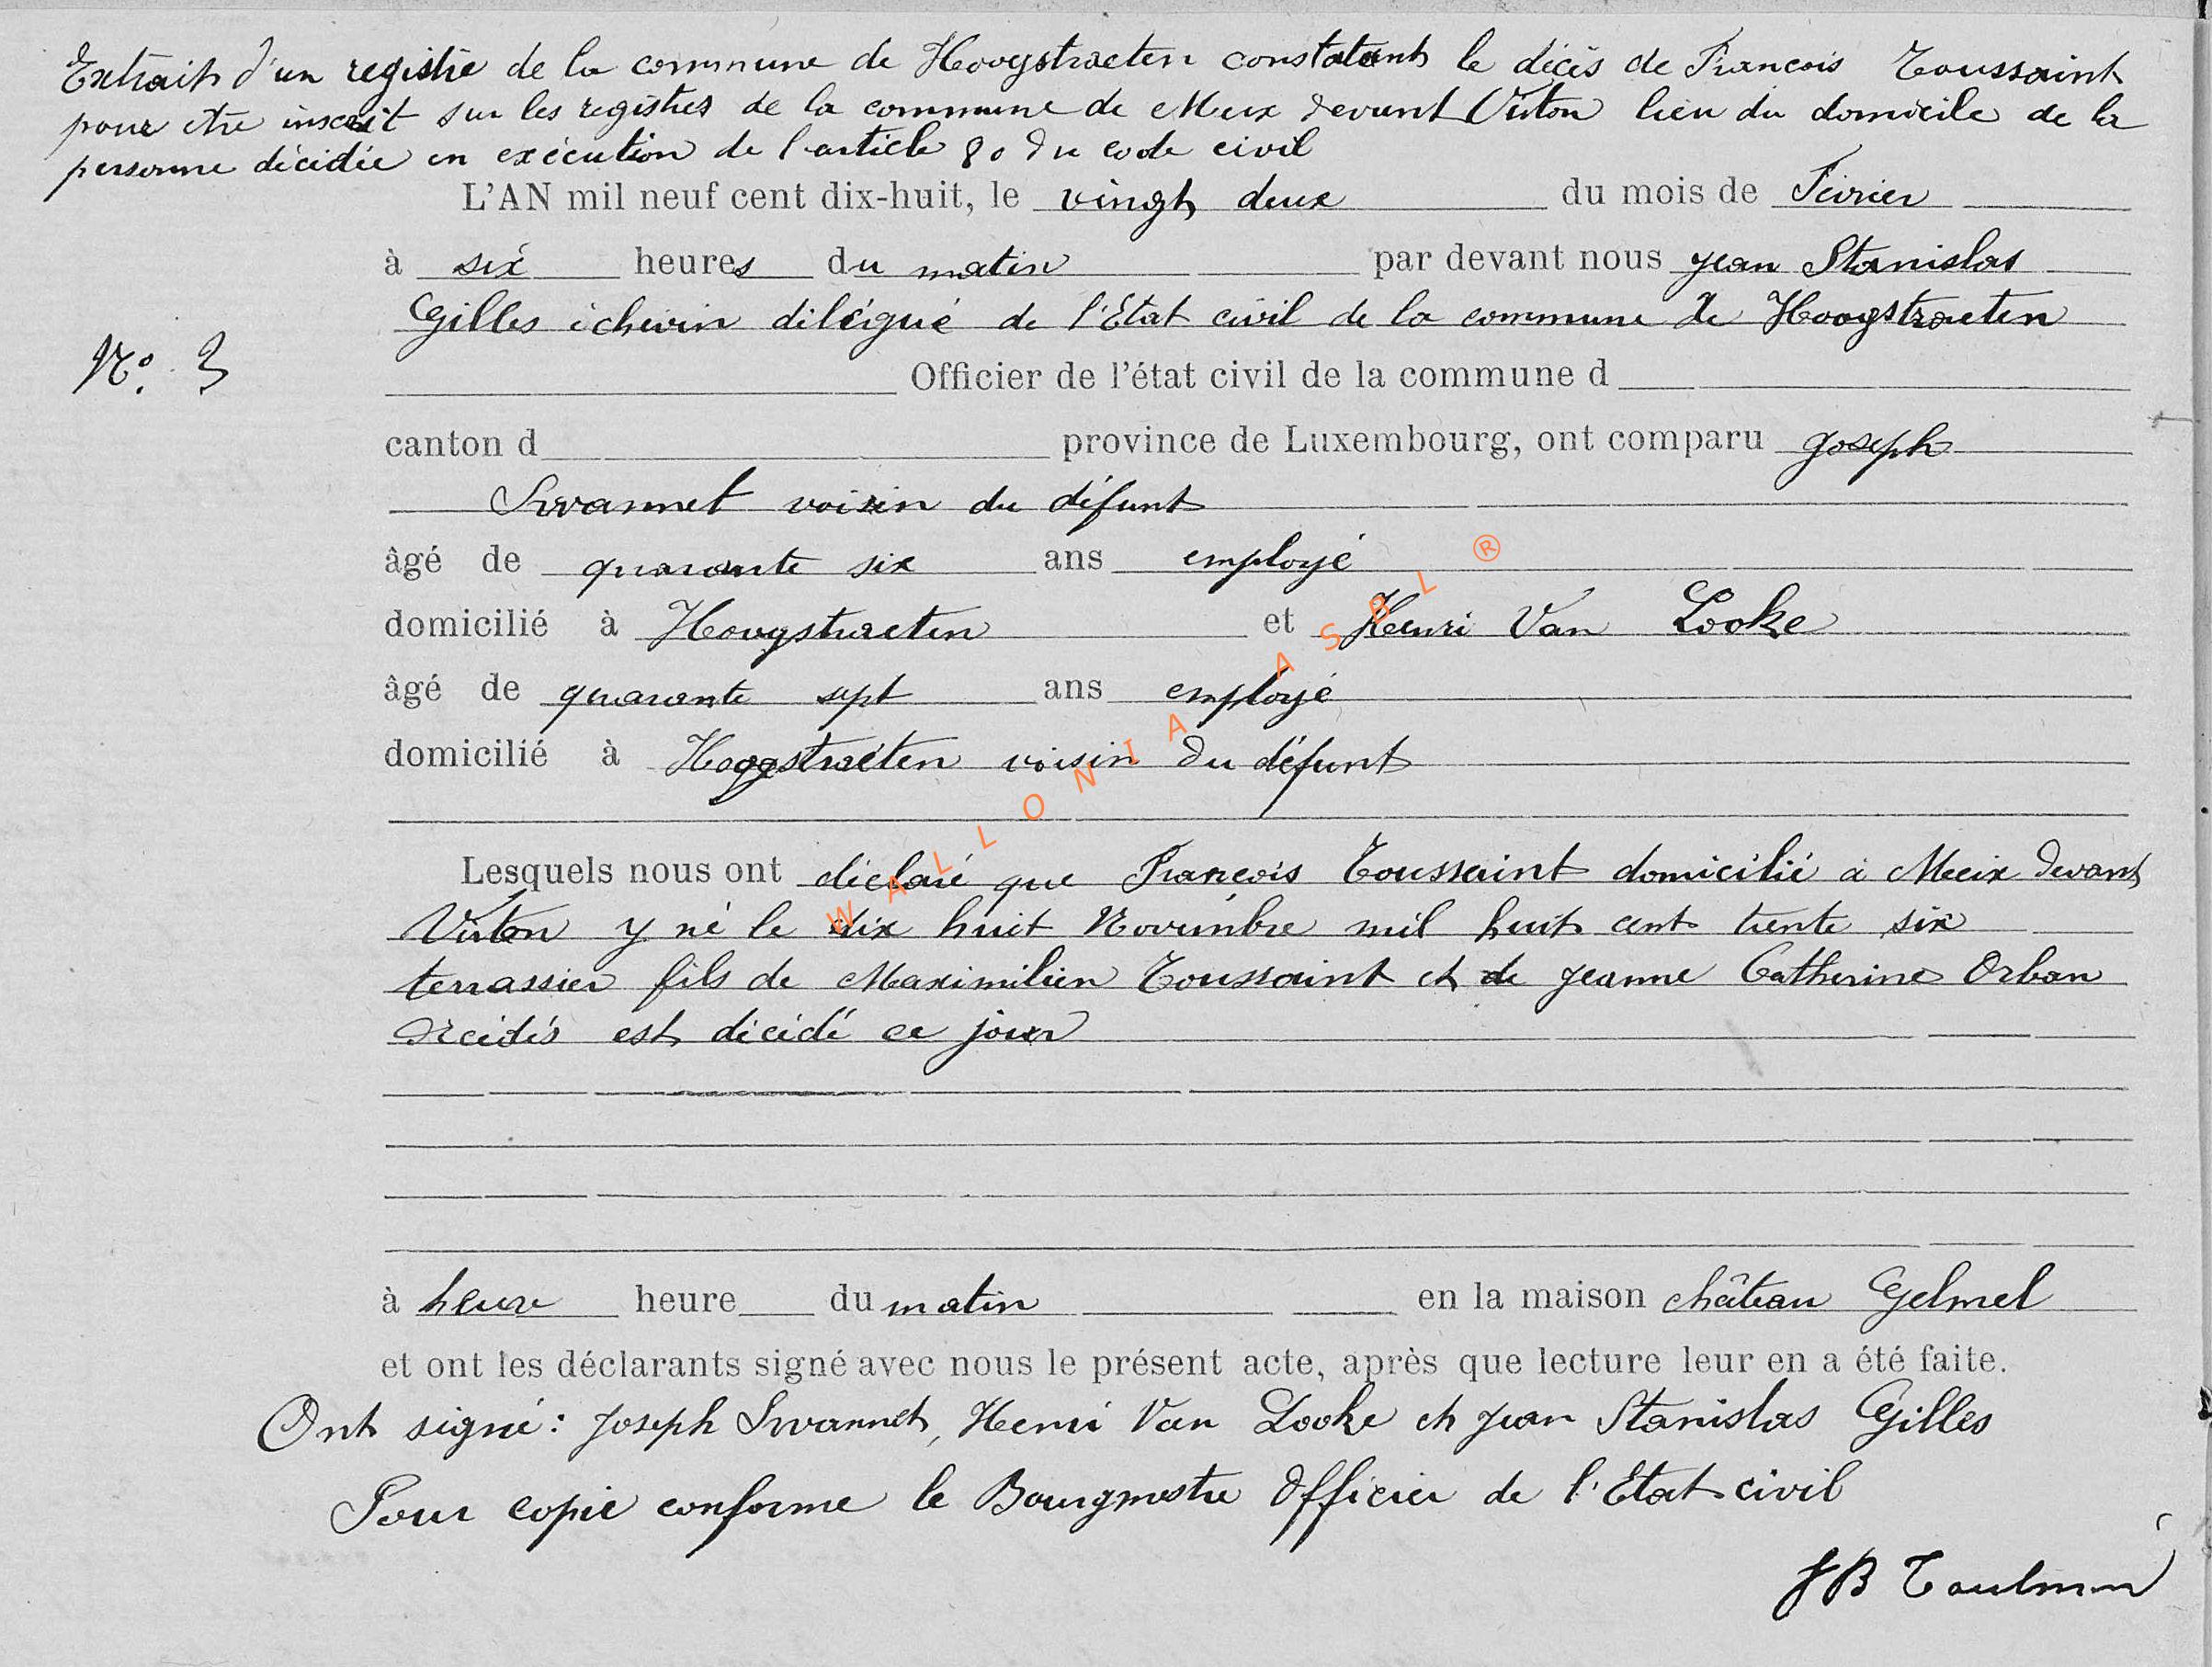 Extrait d'un registre de la commune de Hoogstraeten constatant le décès de François Toussaint
pour être inscrit sur les registres de la commune de Meix devant Virton lieu du domicile de la
personne décédée en exécution de l'article 80 du code civil
L'AN mil neuf cent dix-huit, le vingt deux du mois de Février
à six heures du matin par devant nous Jean Stanislas
Gilles échevin délégué de l'Etat civil de la commune de Hoogstraeten
N° 3
Officier de l'état civil de la commune d
canton d province de Luxembourg, ont comparu Joseph
Swannet voisin du défunt
âgé de quarante six ans employé
domicilié à Hoogstraeten et Henri Van Looke
âgé de quarante sept ans employé
domicilié à Hoogstraeten voisin du défunt
Lesquels nous ont déclaré que François Toussaint domicilié à Meix devant
Virton y né le dix huit Novembre mil huit cent trente six
terrassier fils de Maximilien Toussaint et de Jeanne Catherine Orban
décédés est décédé ce jour
à heure heure du matin en la maison château Gelmel
et ont les déclarants signé avec nous le présent acte, après que lecture leur en a été faite.
Ont signé : Joseph Swannet, Henri Van Looke et Jean Stanislas Gilles
Pour copie conforme le Bourgmestre Officier de l'Etat civil
JB
WALLONIA ASBL ®